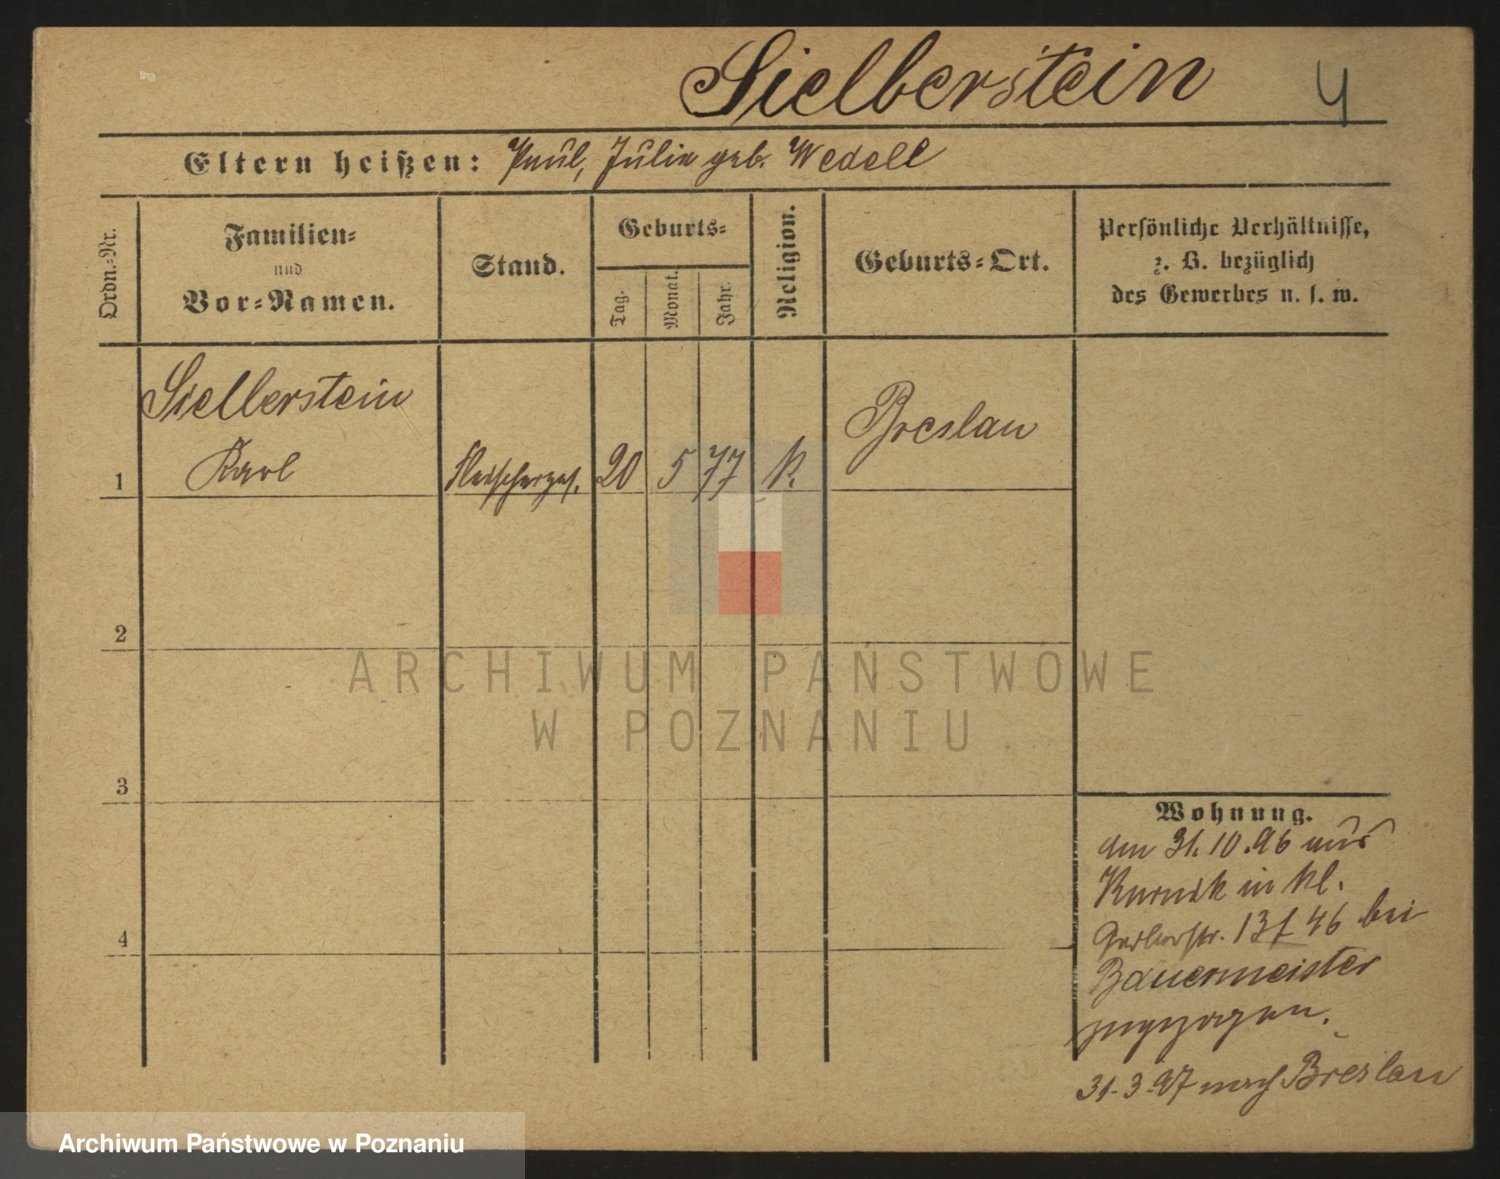 Sielberstein
4
Eltern heißen: Paul, Julie geb. Wedell
Ordn.=Nr.
Familien=
und
Vor=Namen.
Stand.
Geburts=
Tag.
Monat.
Jahr.
Religion.
Geburts=Ort.
Persönliche Verhältnisse,
z. B. bezüglich
des Gewerbes u. s. w.
Sielberstein
Karl
1
Fleischerges.
20
5
77
k.
Breslau
2
ARCHIWUM PAŃSTWOWE
W POZNANIU
3
4
Wohnung.
am 31.10.96 aus
Kurnik in kl.
Gerberstr. 13 f 46 bei
Bauermeister
zugezogen.
31.3.97 nach Breslau
Archiwum Państwowe w Poznaniu